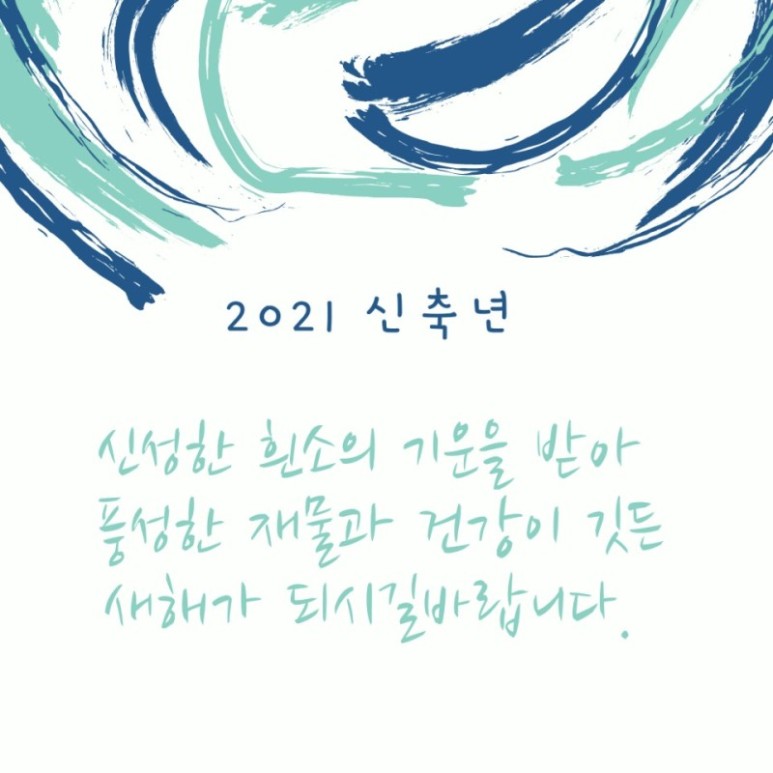 2021 신축년
신성한 흰소의 기운을 받아
풍성한 재물과 건강이 깃든
새해가 되시길바랍니다.